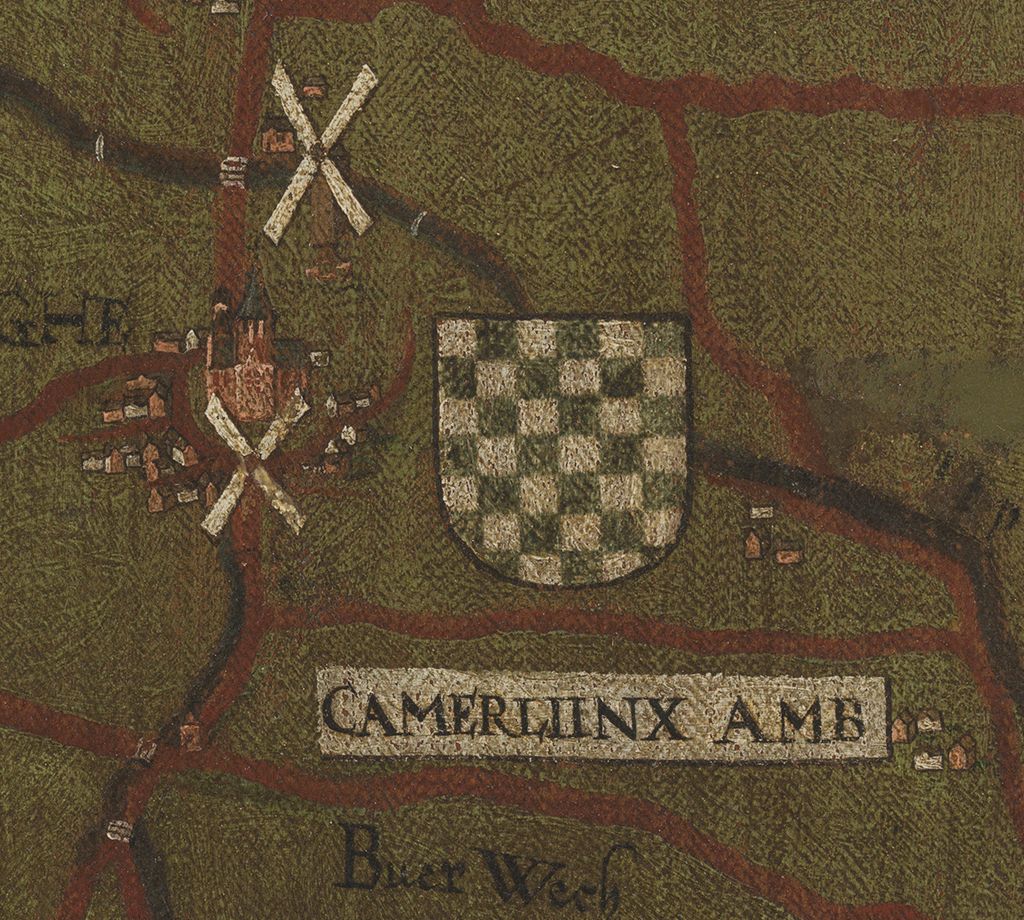 GHE
CAMERLIINX AMB
Buer Wech